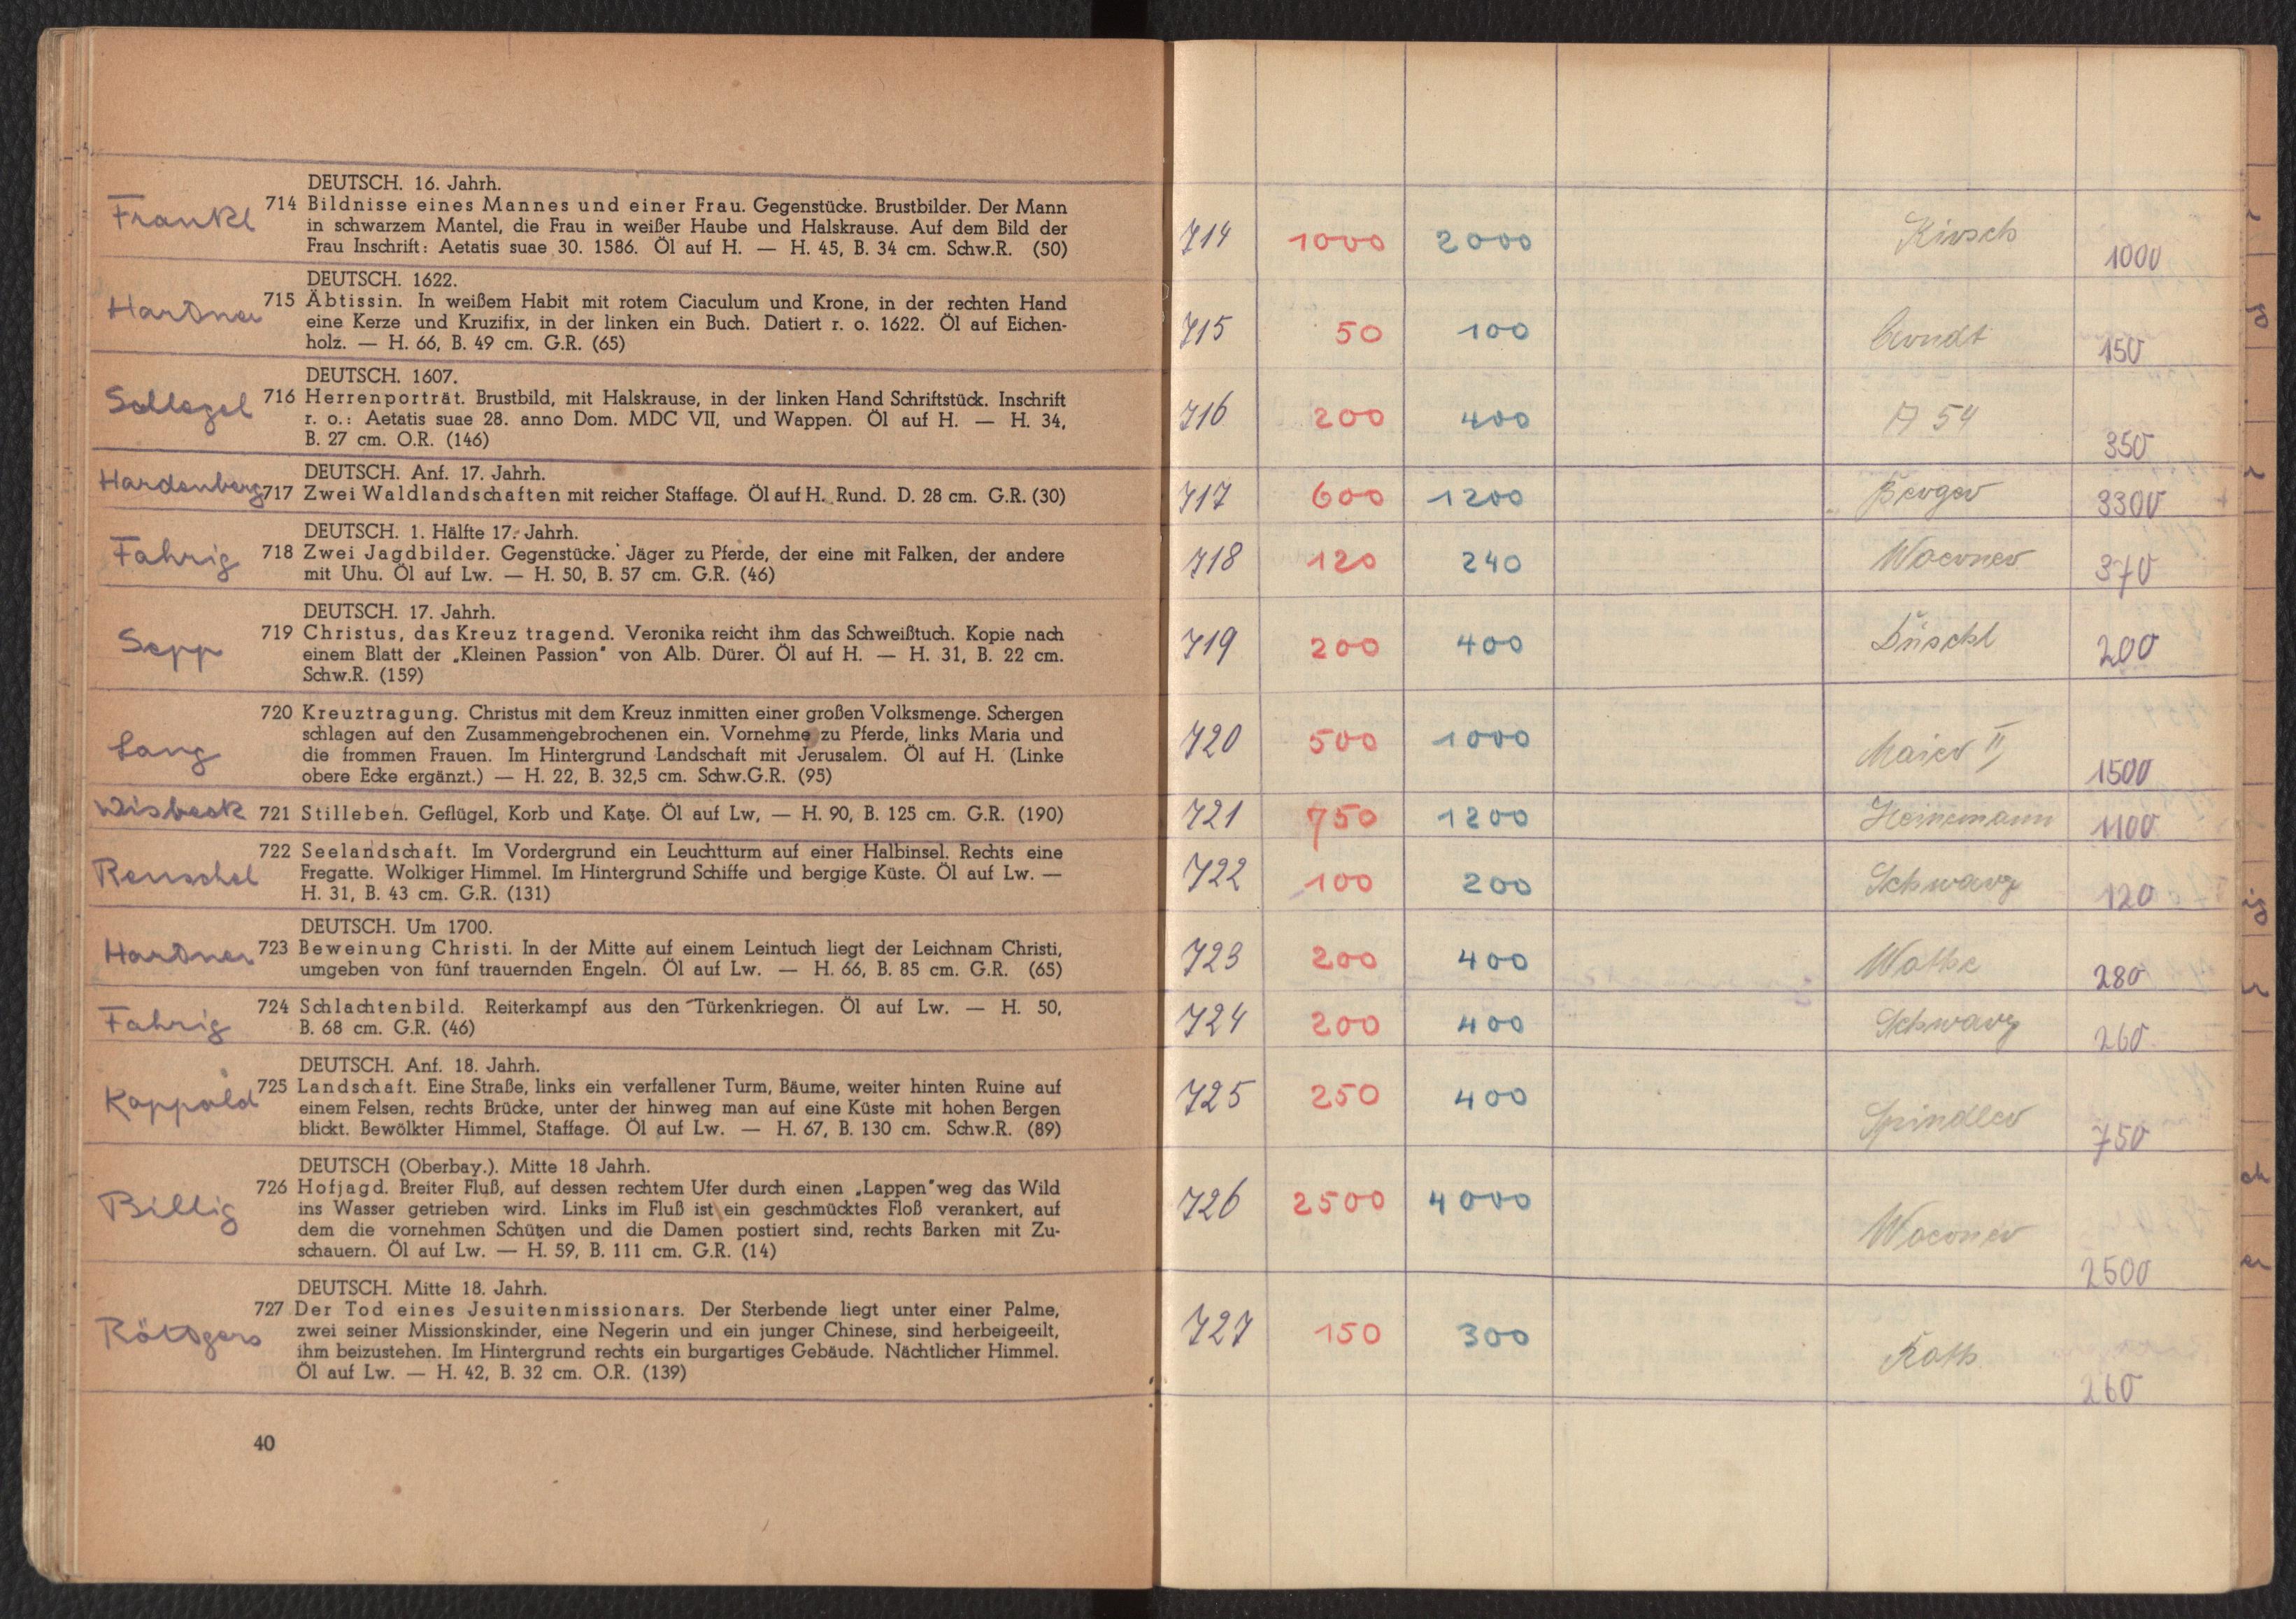 DEUTSCH. 16. Jahrh.
Frankl 714 Bildnisse eines Mannes und einer Frau. Gegenstücke. Brustbilder. Der Mann
in schwarzem Mantel, die Frau in weißer Haube und Halskrause. Auf dem Bild der
Frau Inschrift: Aetatis suae 30. 1586. Öl auf H. — H. 45, B. 34 cm. Schw.R. (50)
DEUTSCH. 1622.
Hartner 715 Äbtissin. In weißem Habit mit rotem Ciaculum und Krone, in der rechten Hand
eine Kerze und Kruzifix, in der linken ein Buch. Datiert r. o. 1622. Öl auf Eichen-
holz. — H. 66, B. 49 cm. G.R. (65)
DEUTSCH. 1607.
Schlegel 716 Herrenporträt. Brustbild, mit Halskrause, in der linken Hand Schriftstück. Inschrift
r. o.: Aetatis suae 28. anno Dom. MDC VII, und Wappen. Öl auf H. — H. 34,
B. 27 cm. O.R. (146)
DEUTSCH. Anf. 17. Jahrh.
Hardenberg 717 Zwei Waldlandschaften mit reicher Staffage. Öl auf H. Rund. D. 28 cm. G.R. (30)
DEUTSCH. 1. Hälfte 17. Jahrh.
Fahrig 718 Zwei Jagdbilder. Gegenstücke. Jäger zu Pferde, der eine mit Falken, der andere
mit Uhu. Öl auf Lw. — H. 50, B. 57 cm. G.R. (46)
DEUTSCH. 17. Jahrh.
Sepp 719 Christus, das Kreuz tragend. Veronika reicht ihm das Schweißtuch. Kopie nach
einem Blatt der „Kleinen Passion" von Alb. Dürer. Öl auf H. — H. 31, B. 22 cm.
Schw.R. (159)
720 Kreuztragung. Christus mit dem Kreuz inmitten einer großen Volksmenge. Schergen
schlagen auf den Zusammengebrochenen ein. Vornehme zu Pferde, links Maria und
Lang die frommen Frauen. Im Hintergrund Landschaft mit Jerusalem. Öl auf H. (Linke
obere Ecke ergänzt.) — H. 22, B. 32,5 cm. Schw.G.R. (95)
Wisbeck 721 Stilleben. Geflügel, Korb und Katze. Öl auf Lw, — H. 90, B. 125 cm. G.R. (190)
722 Seelandschaft. Im Vordergrund ein Leuchtturm auf einer Halbinsel. Rechts eine
Renschel Fregatte. Wolkiger Himmel. Im Hintergrund Schiffe und bergige Küste. Öl auf Lw. —
H. 31, B. 43 cm. G.R. (131)
DEUTSCH. Um 1700.
Hartner 723 Beweinung Christi. In der Mitte auf einem Leintuch liegt der Leichnam Christi,
umgeben von fünf trauernden Engeln. Öl auf Lw. — H. 66, B. 85 cm. G.R. (65)
724 Schlachtenbild. Reiterkampf aus den Türkenkriegen. Öl auf Lw. — H. 50,
Fahrig B. 68 cm. G.R. (46)
DEUTSCH. Anf. 18. Jahrh.
Kappold 725 Landschaft. Eine Straße, links ein verfallener Turm, Bäume, weiter hinten Ruine auf
einem Felsen, rechts Brücke, unter der hinweg man auf eine Küste mit hohen Bergen
blickt. Bewölkter Himmel, Staffage. Öl auf Lw. — H. 67, B. 130 cm. Schw.R. (89)
DEUTSCH (Oberbay.). Mitte 18 Jahrh.
Billig 726 Hofjagd. Breiter Fluß, auf dessen rechtem Ufer durch einen „Lappen"weg das Wild
ins Wasser getrieben wird. Links im Fluß ist ein geschmücktes Floß verankert, auf
dem die vornehmen Schützen und die Damen postiert sind, rechts Barken mit Zu-
schauern. Öl auf Lw. — H. 59, B. 111 cm. G.R. (14)
DEUTSCH. Mitte 18. Jahrh.
727 Der Tod eines Jesuitenmissionars. Der Sterbende liegt unter einer Palme,
Röttgers zwei seiner Missionskinder, eine Negerin und ein junger Chinese, sind herbeigeeilt,
ihm beizustehen. Im Hintergrund rechts ein burgartiges Gebäude. Nächtlicher Himmel.
Öl auf Lw. — H. 42, B. 32 cm. O.R. (139)
40
714 1000 2000 Kirsch 1000
715 50 100 Arndt 150
716 200 400 A 54 350
717 600 1200 Berger 3300
718 120 240 Woerner 370
719 200 400 Düschl 200
720 500 1000 Maier II 1500
721 750 1200 Heinemann 1100
722 100 200 Schwarz 120
723 200 400 Wothe 280
724 200 400 Schwarz 260
725 250 400 Spindler 750
726 2500 4000 Woerner 2500
727 150 300 Roth 260